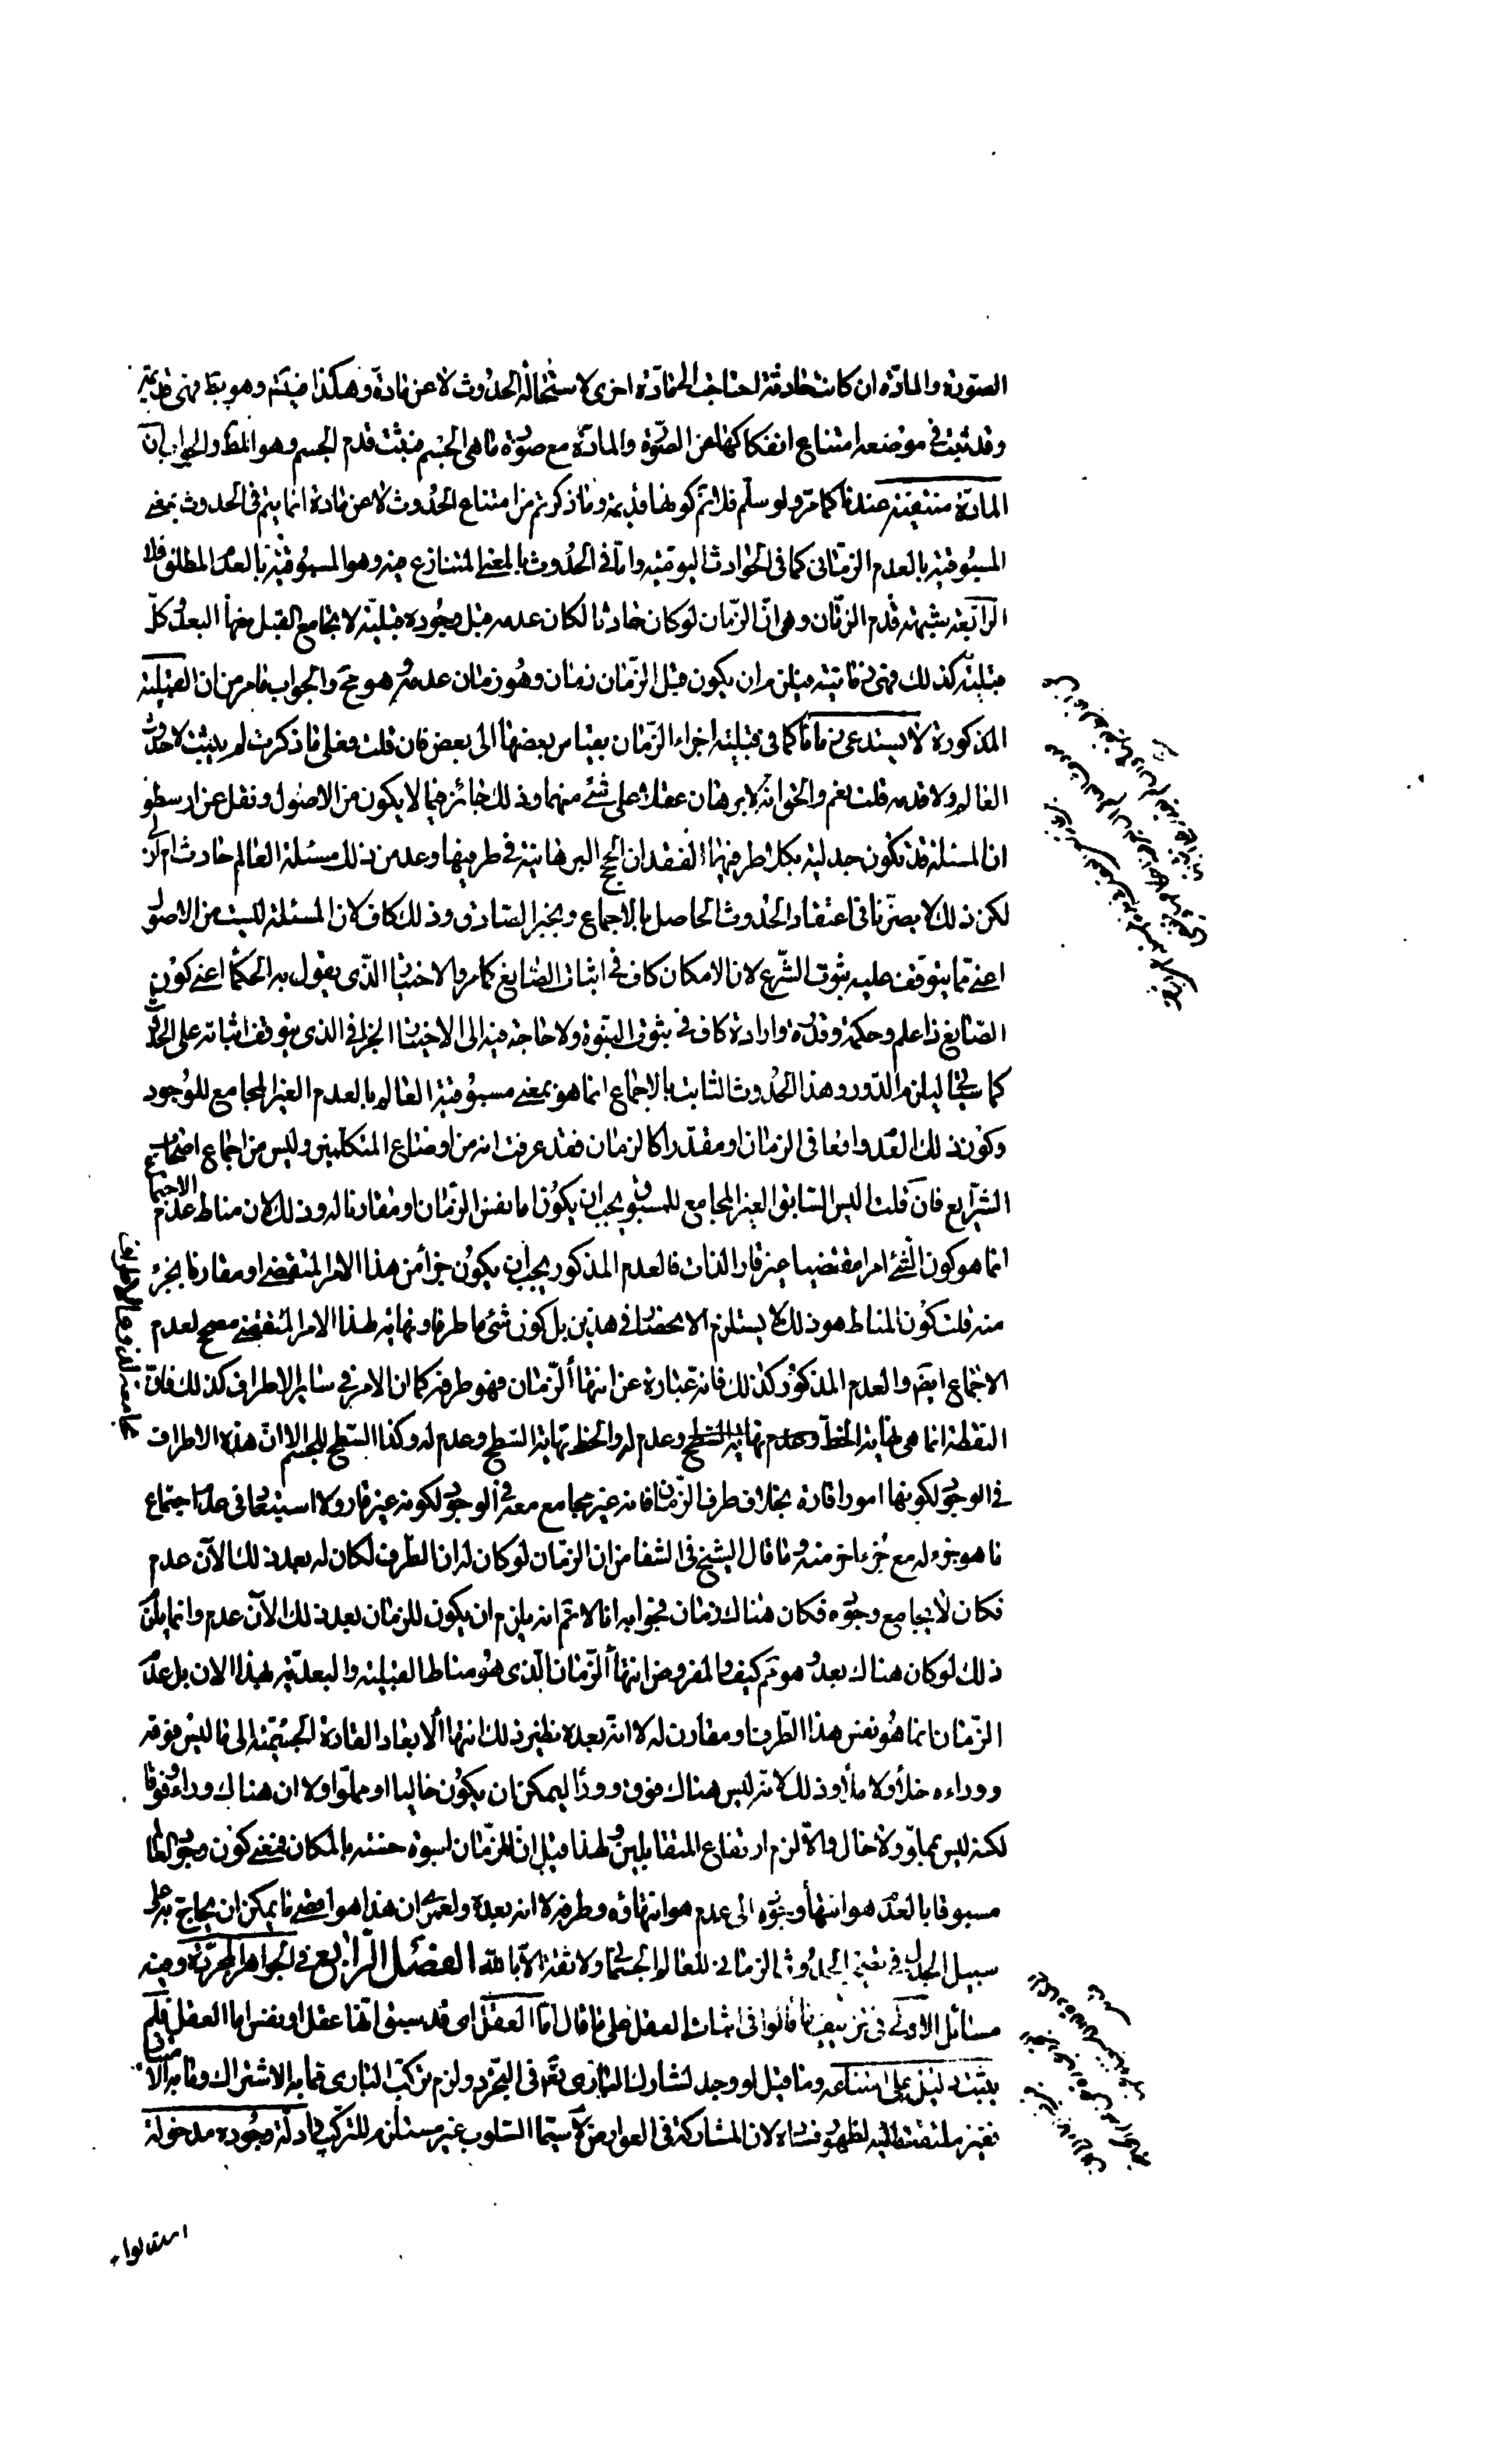 الصّورة والمادّة ان كانت حادثة احتاجت الى مادّة اخرى لاستحالة الحدوث لا عن مادة وهكذا فيتسّم وهو بط فهى قديمة
وقد ثبت فى موضعه امتناع انفكاكها عن الصّورة والمادّة مع صورة ما هى الجسم فيثبت قدم الجسم وهو المط والجواب ان
المادّة منتفية عندنا كما مرّ ولو سلّم فلا نم كونها قديمة وما ذكرتم من امتناع الحدوث لا عن مادة انما يتم فى الحدوث بمعنى
المسبوقية بالعدم الزمّانى كما فى الحوادث اليومّية وامّا فى الحدوث بالمعنى المتنازع فيه وهو المسبوقية بالعدم المطلق فلا
الرّابعة شبهة قدم الزمّان وهى انّ الزمّان لو كان حادثا لكان عدمه قبل وجوده قبليّة لا يجامع القبل فيها البعد وكلّ
قبلية كذلك فهى زمانية فيلزم ان يكون قبل الزمّان زمان وهو زمان عدمه هو مح والجواب ما مر من ان القبلية
المذكورة لا يستدعى زمانا كما فى قبلية اجزاء الزمّان بقياس بعضها الى بعض فان قلت فعلى ما ذكرت لم يثبت لا حدوث
العالم ولا قدمه قلت نعم والحق انّه لا برهان عقلا على شئ منهما وذلك جائز فيما لا يكون من الاصول ونقل عن ارسطو
ان المسئلة قد تكون جدلية بكلا طرفيها لفقدان الحجج البرهانية فى طرفيها وعد من ذلك مسئلة العالم حادث ام ازلى
لكن ذلك لا يضرّنا فى اعتقاد الحدوث الحاصل بالاجماع وبخبر الصّادق وذلك كاف لان المسئلة ليست من الاصول
اعنى ممّا يتوقف عليه ثبوت الشّرع لان الامكان كاف فى اثبات الصّانع كما مر والاختيار الذّى يقول به الحكما اعنى كون
الصّانع ذا علم وحكمة وقدرة وارادة كاف فى ثبوت النبّوة ولا حاجة فيه الى الاختيار الجزافى الذى يتوقف اثباته على الحدوث
كما سيجئ ليلزم الدّور وهذا الحدوث الثابت بالاجماع انما هو بمعنى مسبوقية العالم بالعدم الغير المجامع للوجود
وكون ذلك العدم واقعا فى الزمان او مقدّرا كالزمان فقد عرفت انه من اوضاع المتكلمين وليس من اجماع اصحاب
الشّرايع فان قلت اليس السّابق الغير المجامع للمسبوق يجب ان يكون اما نفس الزمّان او مقارنا له وذلك لان مناط عدم الاجتماع
انما هو كون الشّئ امرا مقتضيا غير قار الذات فالعدم المذكور يجب ان يكون جزأ من هذا الامر المتقضى او مقارنا بجزء
منه قلت كون المناط هو ذلك لا يستلزم الانحصار فى هذين بل كون شئ ما طرفا ونهاية لهذا الامر المتقضى مصحح لعدم
الاجتماع ايضا والعدم المذكور كذلك فانه عبارة عن انتهأ الزّمان فهو طرفه كما ان الامر فى سائر الاطراف كذلك فانّ
النقطة انما هى نهاية الخطّ وعدم له والخط نهاية السّطح وعدم له وكذا السّطح للجسم الا انّ هذه الاطراف
فى الوجود لكونها امورا قارة بخلاف طرف الزّمان فانه غير مجامع معه فى الوجود لكونه غير قار ولا استبعاد فى عدم اجتماع
ما هو جزء له مع جزء اخر منه وما قال الشيخ فى الشفا من ان الزمّان لو كان له ان الطّرف لكان له بعد ذلك الآن عدم
فكان لا يجامع وجوده فكان هناك زمان فجوابه انا لا نم انه يلزم ان يكون للزمّان بعد ذلك الآن عدم وانما يلزم
ذلك لو كان هناك بعد وهو نم كيف والمفروض انتهأ الزّمان الذّى هو مناط القبلية والبعديّة بهذا الان بل عدم
الزّمان انما هو نفس هذا الطّرف او مقارن له لا انّه بعده نظير ذلك انتهأ الابعاد القارة الجسمّية الى ما ليس فوقه
ووراءه خلأ ولا ملأ وذلك لانّه ليس هناك فوق وورأ ليمكن ان يكون خاليا او مملوّا ولا ان هناك وراء وفوقا
لكنه ليس بمملوّ ولا خال والّا لزم ارتفاع المتقابلين ولهذا قيل انّ للزمّان اسوة حسنة بالمكان فمعنى كون وجود العالم
مسبوقا بالعدم هو انتهأ وجوده الى عدم هو انتهاؤه وطرفه لا انه بعده ولعمرى ان هذا هو اقصى ما يمكن ان يحاجّ به على
سبيل الجدل فى تعيين الحدوث الزمانى للعالم الجسمانى ولا ثقة الّا بالله الفصل الرّابع فى الجواهر المجرّدة وفيه
مسائل الاولى فى تزييف ما قالوا فى اثبات العقل على ما قال امّا العقل اى قد سبق انّها عقل او نفس اما العقل فلم
يثبت دليل على امتناعه وما قيل لو وجد لشارك البارى تعّ فى التجّرد ولزم تركّب البارى ممّا به الاشتراك وما به الامتياز
فغير ملتفت اليه لظهور فساده لان المشاركة فى العوارض لا سيّما السّلوب غير مستلزم للتركيب وادلّة وجوده مدخولة
استدلوا